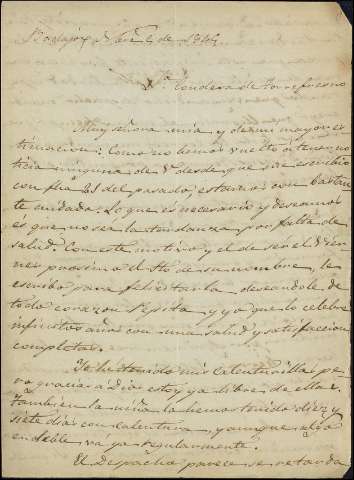 Badajoz 2 de 1846
Sra. Condesa de Torrefresno
Muy señora mia y de mi mayor es
timacion: Como no hemos vuelto a tener no
ticia ninguna de V. desde que me escribió
con fha del pasado, estamos con bastan
te cuidado. Lo que es necesario y deseamos
es que no sea la tardanza por falta de
salud. Con este motivo y el de ser el Vier
nes proximo el Sto. de su nombre, le
escribo para felicitarla deseandole de
todo corazon Pepita y yo que lo celebre
infinitos años con una salud y satisfaccion
completas.
Yo he tenido mis calenturillas pe
ro gracias a Dios estoy ya libre de ellas.
Tambien la niña la hemos tenido diez y
siete dias con calentura, y aunque algo
endeble va ya regularmente.
El despacho parece se retarda